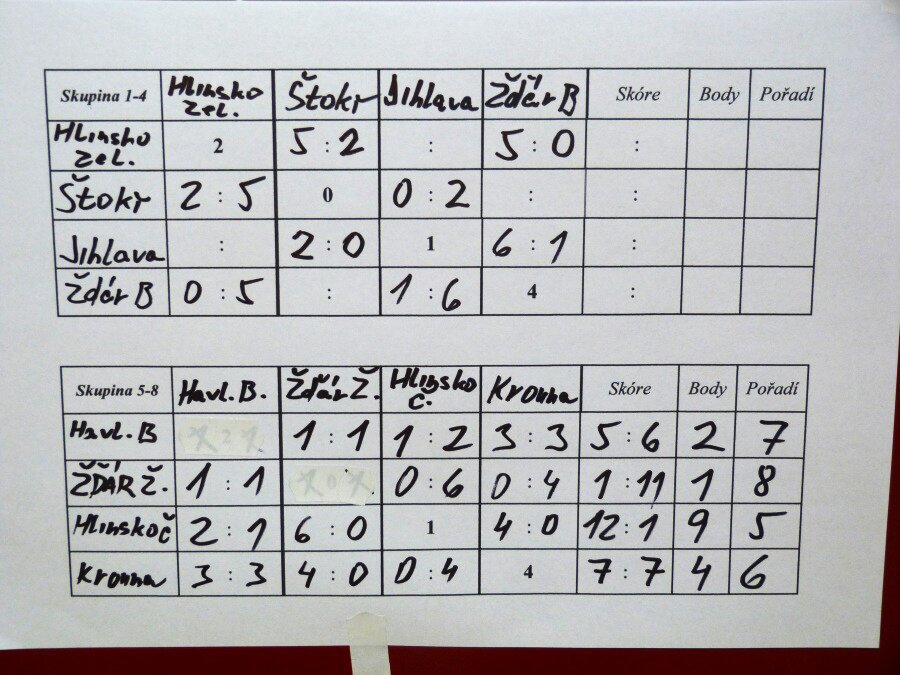 Skupina 1-4 Hlinsko zel. Štokr Jihlava Žďár B Skóre Body Pořadí
Hlinsko zel. 2 5 : 2 : 5 : 0 :
Štokr 2 : 5 0 0 : 2 : :
Jihlava : 2 : 0 1 6 : 1 :
Žďár B 0 : 5 : 1 : 6 4 :
Skupina 5-8 Havl. B. Žďár Ž. Hlinsko č. Krouna Skóre Body Pořadí
Havl. B 1 : 1 1 : 2 3 : 3 5 : 6 2 7
ŽĎÁR Ž. 1 : 1 0 : 6 0 : 4 1 : 11 1 8
Hlinsko č 2 : 1 6 : 0 1 4 : 0 12 : 1 9 5
Krouna 3 : 3 4 : 0 0 : 4 4 7 : 7 4 6